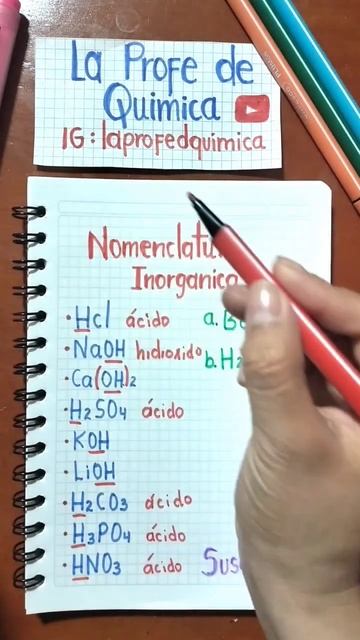 La Profe de
Química
IG: laprofedquímica
Nomenclatu
Inorganica
·Hcl ácido
·NaOH hidroxido
·Ca(OH)2
·H2SO4 ácido
·KOH
·LiOH
·H2CO3 ácido
·H3PO4 ácido
·HNO3 ácido
a. B
b. H2
Sus